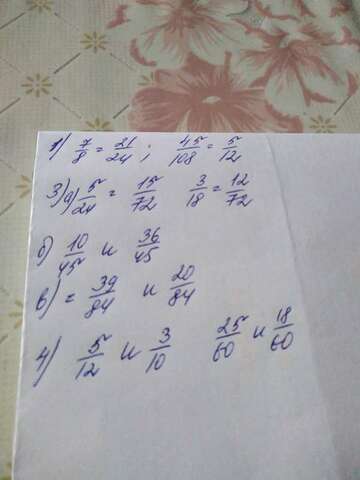 1) 7/8 = 21/24 ; 45/108 = 5/12
3) а) 5/24 = 15/72 3/18 = 12/72
б) 10/45 и 36/45
в) = 39/84 и 20/84
4) 5/12 и 3/10 25/60 и 18/60